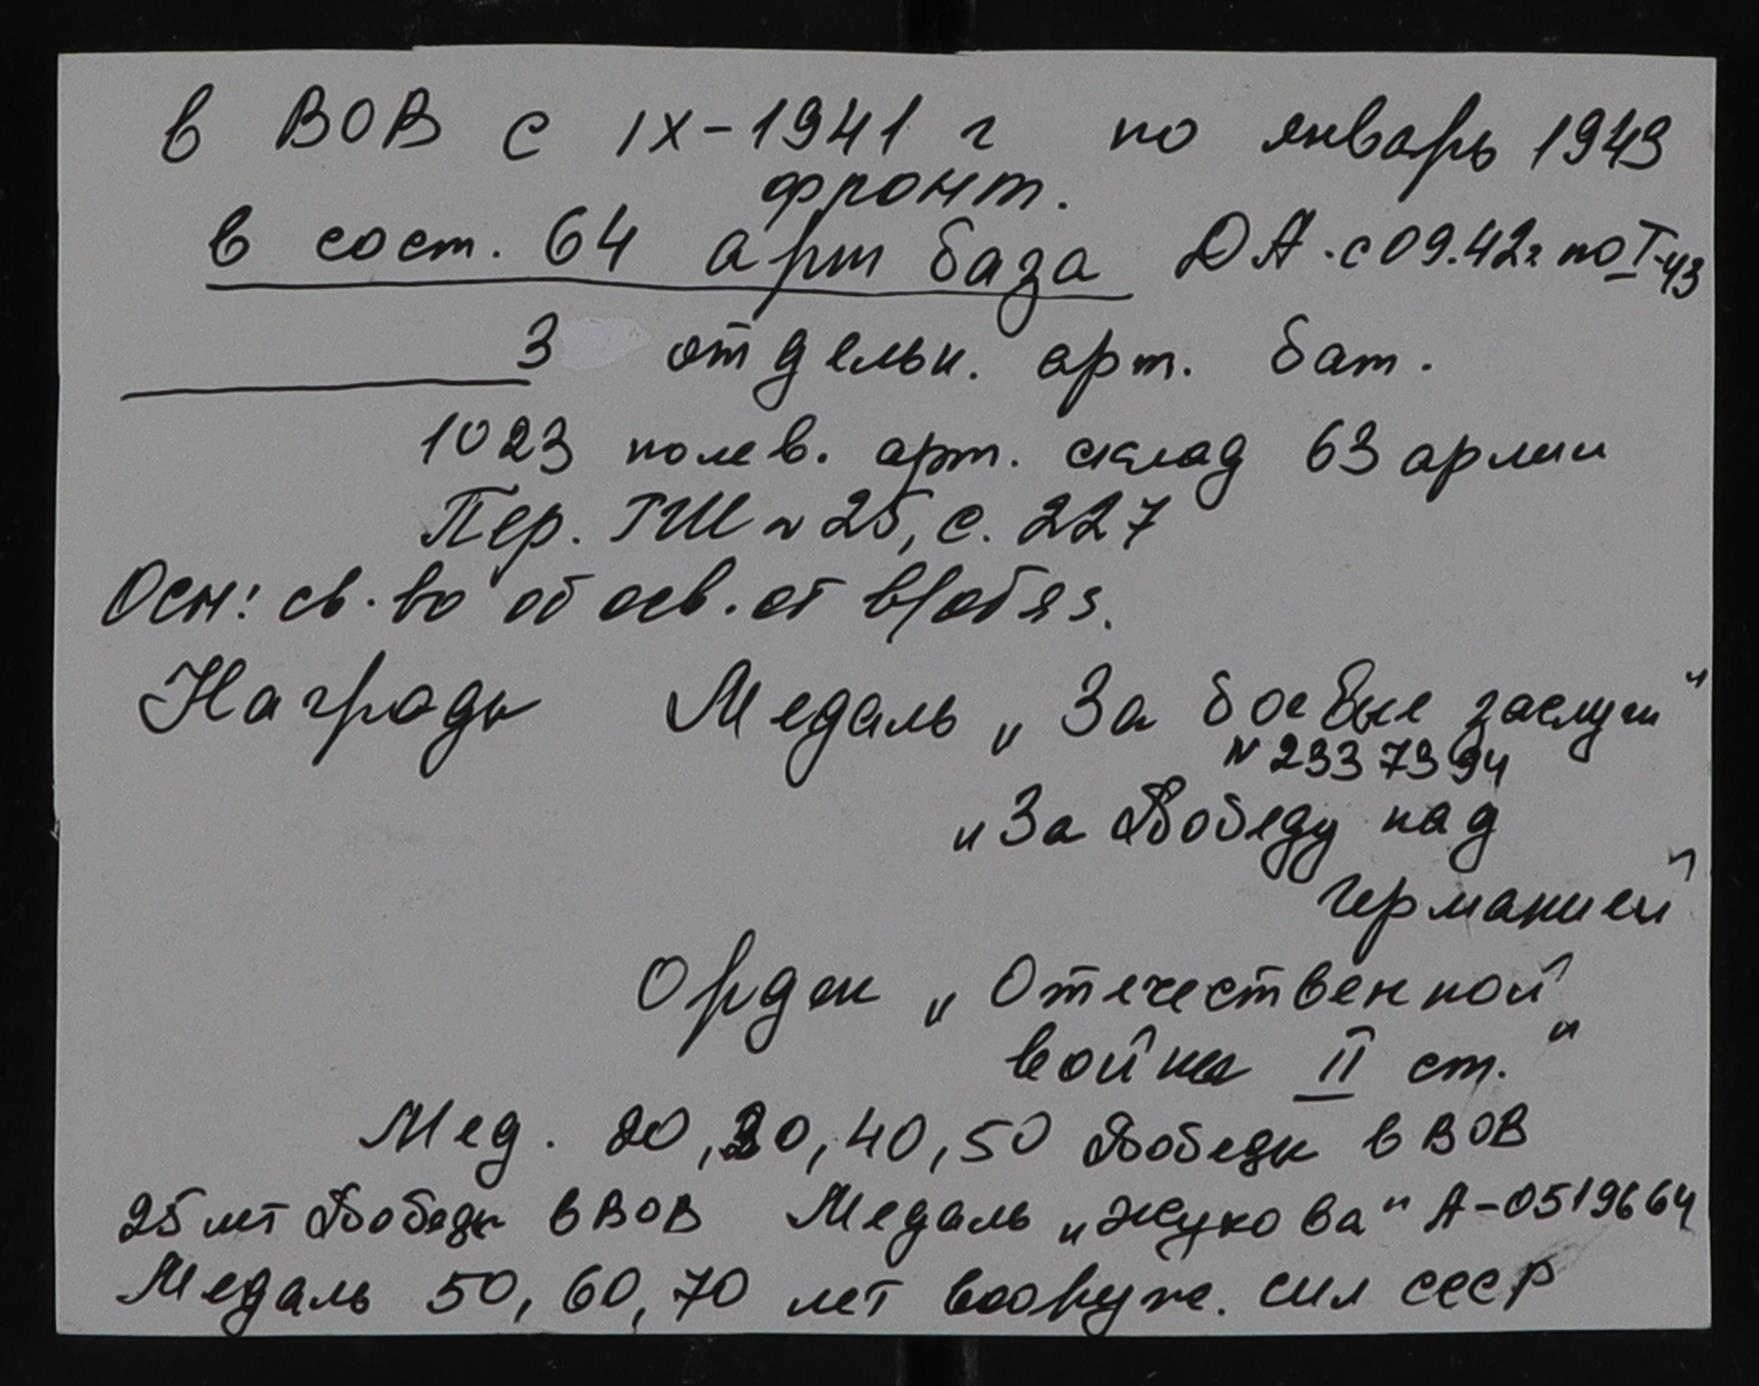 в ВОВ с IX-1941 г по январь 1943
фронт.
в сост. 64 арт база ДА. с 09.42г по I-43
3 отдельн. арт. бат.
1023 полев. арт. склад 63 армии
Пер. ГШ N 25, с. 227
Осн: св-во об осв. от в/обяз.
Награды Медаль „За боевые заслуги"
N 2337394
„За Победу над
Германией"
Орден „Отечественной
войны II ст."
Мед. 20, 30, 40, 50 Победы в ВОВ
25 лет Победы в ВОВ Медаль „Жукова" А-0519664
Медаль 50, 60, 70 лет вооруж. сил СССР